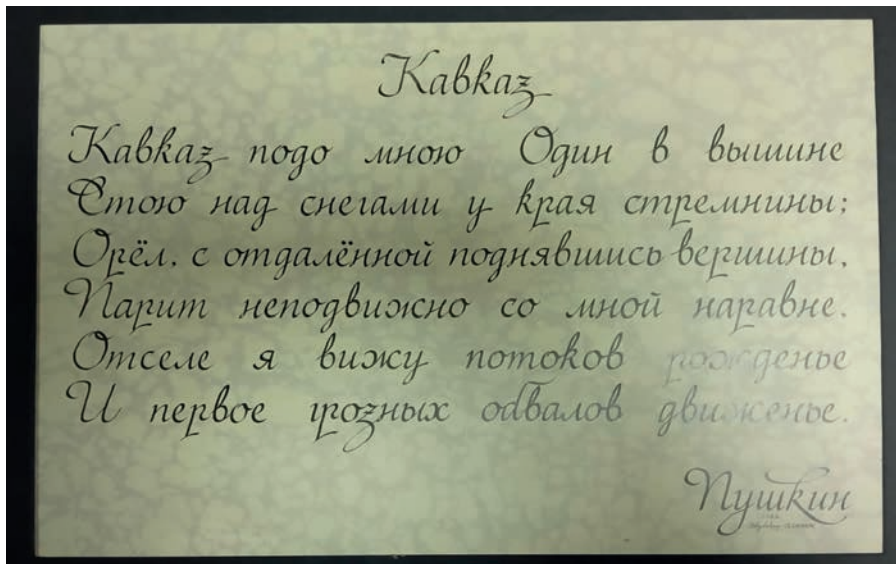 Кавказ
Кавказ подо мною Один в вышине
Стою над снегами у края стремнины;
Орёл, с отдалённой поднявшись вершины,
Парит неподвижно со мной наравне.
Отселе я вижу потоков рожденье
И первое грозных обвалов движенье.
Пушкин